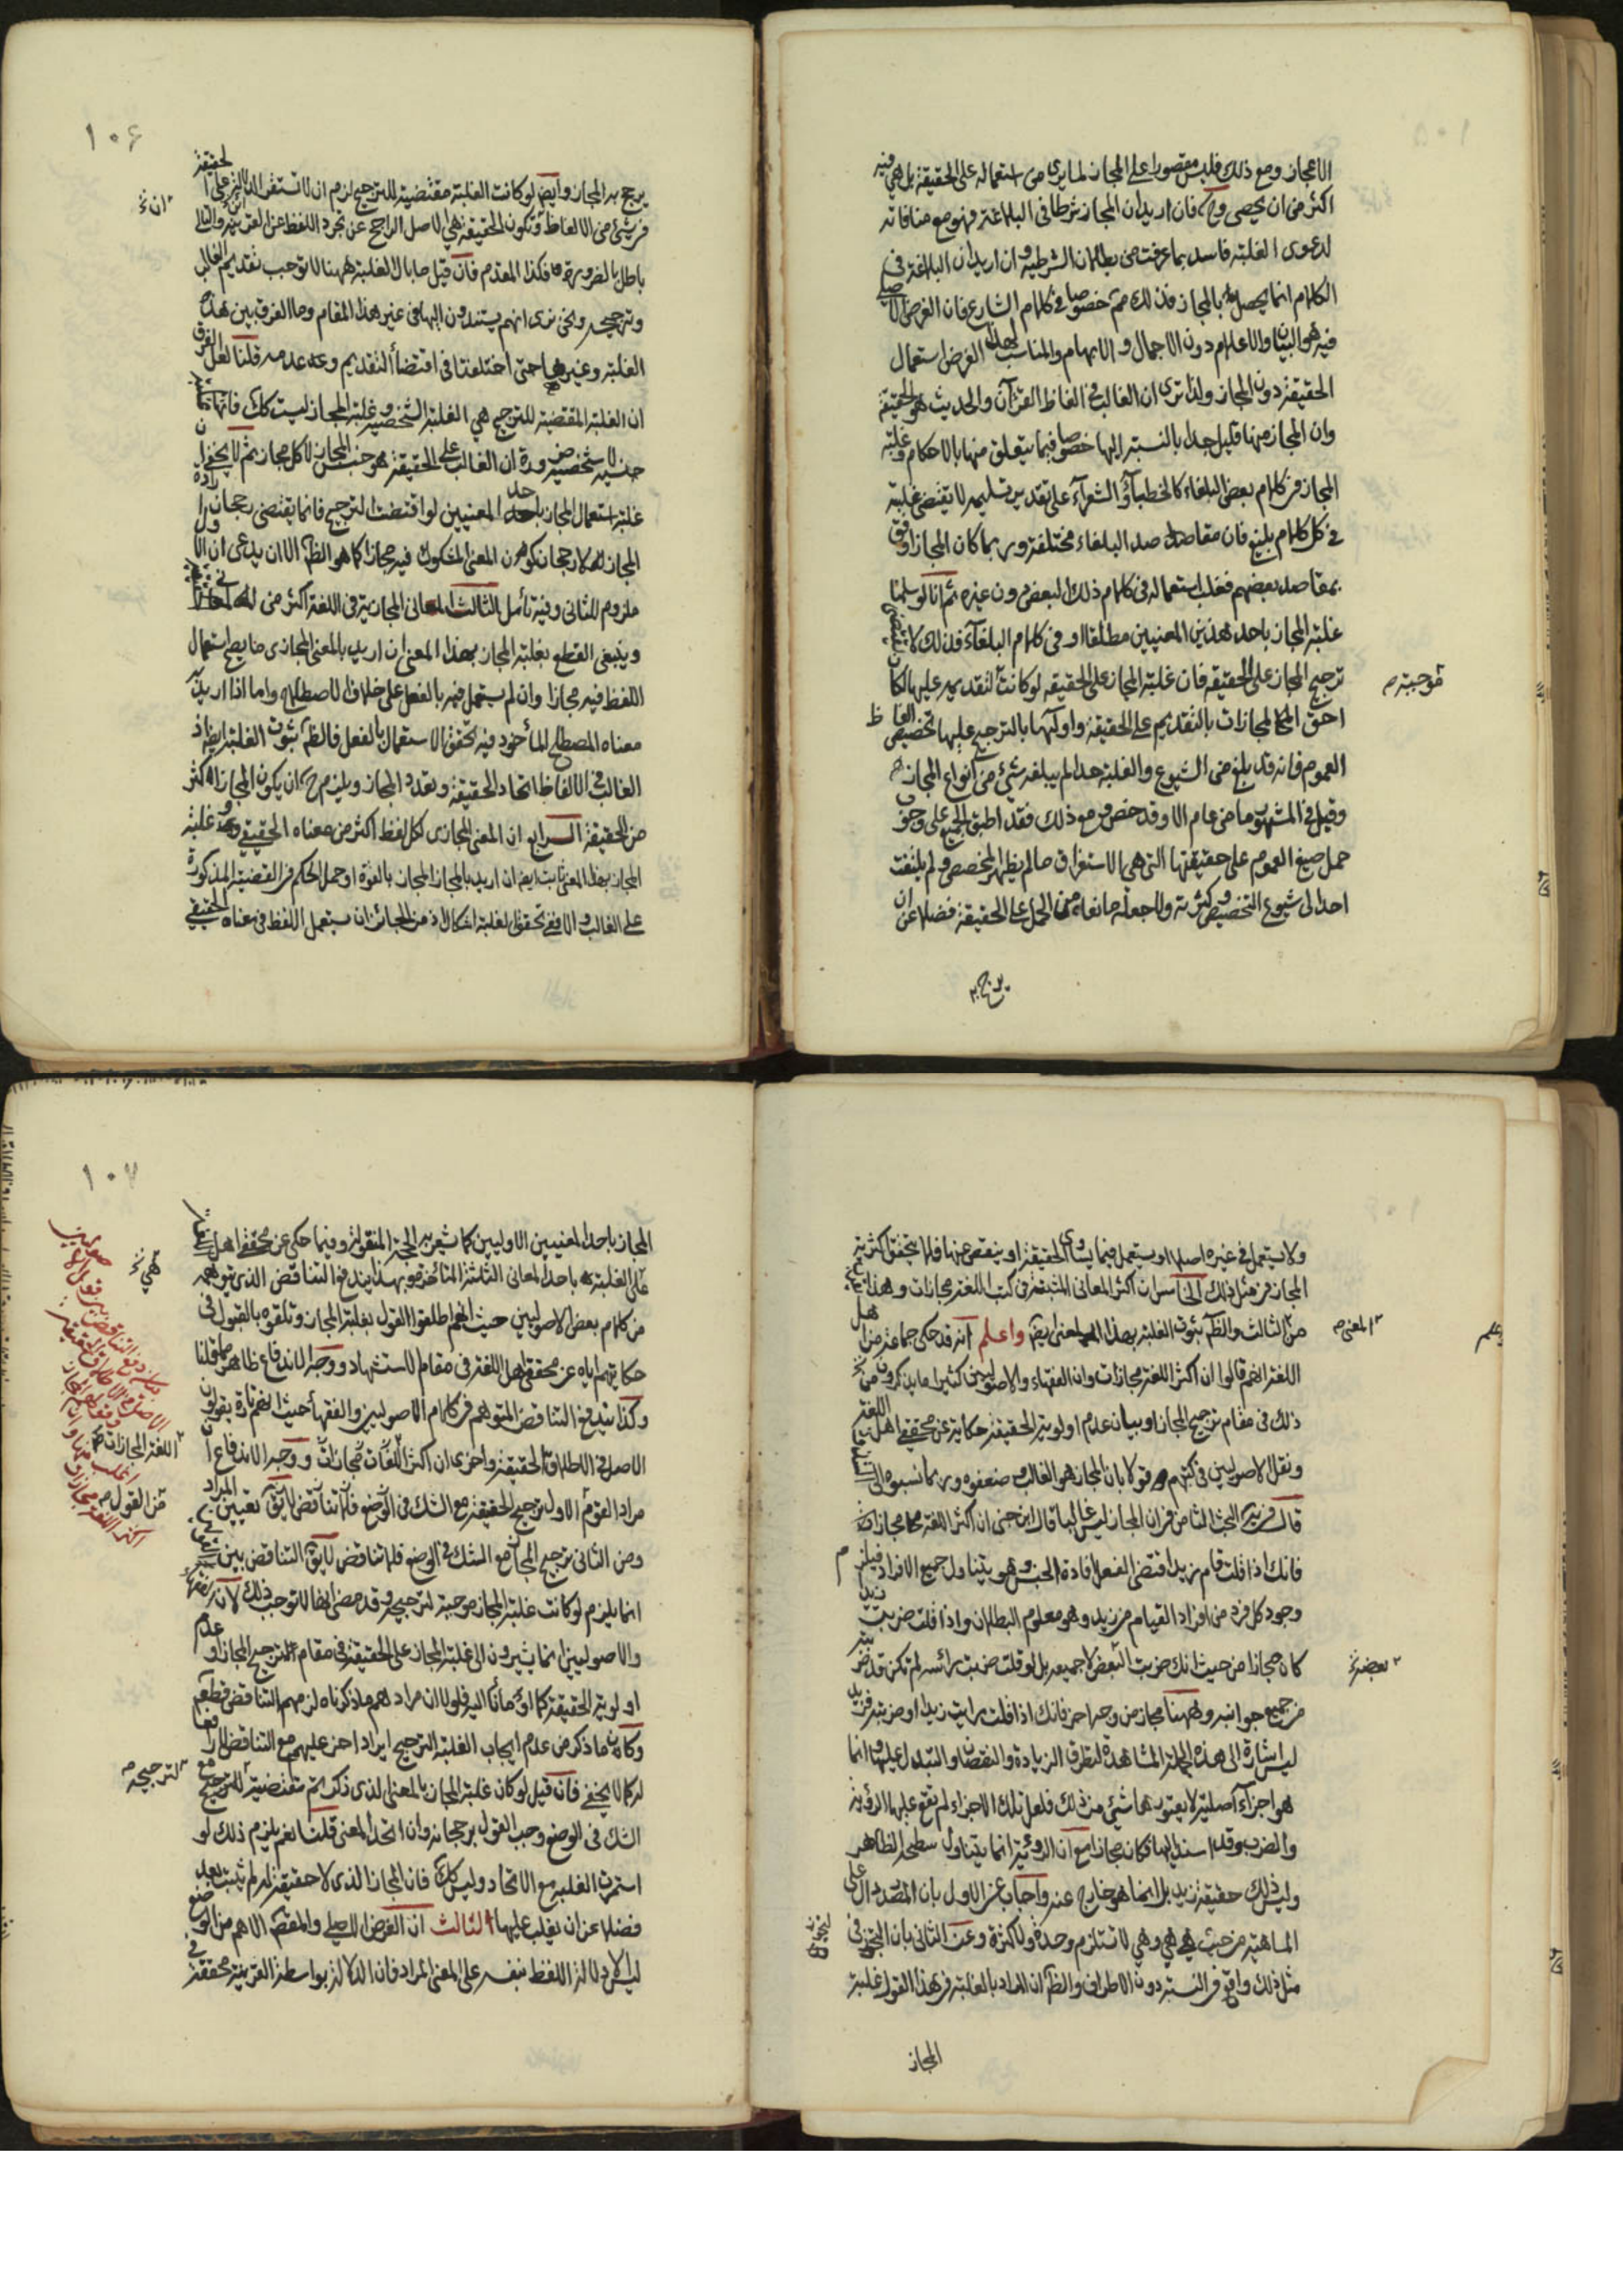 الاعجاز ومع ذلك فليس مقصورا على المجاز لما يرى من استعماله على الحقيقة بل هي فيه
اكثر من ان يحصى وح فان اريد ان المجاز شرط في البلاغة فهو مع منافاته
لدعوى الغلبة فاسد بما عرفت من بطلان الشرطية وان اريد ان البلاغة في
الكلام انما يحصل بالمجاز فذلك مم خصوصا في كلام الشارع فان الغرض الاصلي
فيه هو البيان والاعلام دون الاجمال والابهام والمناسب لهذا الغرض استعمال
الحقيقة دون المجاز ولذا ترى ان الغالب في الفاظ القرآن والحديث هو الحقيقة
وان المجاز منها قليل جدا بالنسبة اليها خصوصا فيما يتعلق منها بالاحكام وغلبة
المجاز في كلام بعض البلغاء كالخطبآء والشعرآء على تقدير تسليمه لا يقتضي غلبته
في كل كلام بليغ فان مقاصد البلغاء مختلفة وربما كان المجاز اوفق
بمقاصد بعضهم فغلب استعماله في كلام ذلك البعض دون غيره ثم انا لو سلمنا
غلبة المجاز باحد هذين المعنيين مطلقا او في كلام البلغآء فذلك لا يقتضي
ترجيح المجاز على الحقيقة فان غلبة المجاز على الحقيقة لو كانت لتقديمه عليها لكان
موجبة م
احق المجازات بالتقديم على الحقيقة واوليها بالترجيح عليها تخصيص الفاظ
العموم فانه قد بلغ من الشيوع والغلبة حدا لم يبلغه شئ من انواع المجاز
وقيل في المشهور ما من عام الا وقد خص ومع ذلك فقد اطبق الجميع على وجوب
حمل صيغ العموم على حقيقتها التي هي الاستغراق ما لم يظهر المخصص ولم يلتفت
احد الى شيوع التخصيص وكثرته ولا جعله مانعا من الحمل على الحقيقة فضلا عن ان
يرجح به
١٠٦
يرجح به المجاز وايض لو كانت الغلبة مقتضية للترجيح لزم ان لا تستقر الدلالة على الحقيقة
ان خ
في شئ من الالفاظ وتكون الحقيقة هي الاصل الراجح عن تجرد اللفظ عن القرينة والتالي
باطل بالضرورة فكذا المقدم فان قيل ما بال الغلبة ههنا لا توجب تقديم الغالب
وترجيحه ونحن نرى انهم يستندون اليها في غير هذا المقام وما الفرق بين هذه
الغلبة وغيرها حتى اختلفتا في اقتضاء التقديم وعدمه قلنا لعل الفرق
ان الغلبة المقتضية للترجيح هي الغلبة الشخصية وغلبة المجاز ليست كك فانها
جنسية لا شخصية ضرورة ان الغالب على الحقيقة هو جنس المجاز لا كل مجاز ثم لا يخفى ان
غلبة استعمال المجاز باحد المعنيين لو اقتضت الترجيح فانما يقتضي رجحان ارادة
المجاز لا رجحان كون المعنى المشكوك فيه مجازا كما هو الظ الا ان يدعى ان الاول
ملزوم للثاني وفيه تأمل الثالث المعاني المجازية في اللغة اكثر من
وينبغي القطع بغلبة المجاز بهذا المعنى ان اريد بالمعنى المجازي ما يصح استعمال
اللفظ فيه مجازا وان لم يستعمل فيه بالفعل على خلاف الاصطلاح واما اذا اريد به
معناه المصطلح المأخوذ فيه تحقق الاستعمال بالفعل فالظ ثبوت الغلبة ايضا اذ
الغالب في الالفاظ اتحاد الحقيقة وتعدد المجاز ويلزم ح ان يكون المجاز اكثر
من الحقيقة الرابع ان المعنى المجازي لكل لفظ اكثر من معناه الحقيقي وغلبة
المجاز بهذا المعنى ثابت ايضا ان اريد بالمجاز المجاز بالقوة او حمل الحكم في القضية المذكورة
على الغالب والا ففي تحقق الغلبة اشكال اذ من الجائز ان يستعمل اللفظ في معناه الحقيقي
ولا يستعمل في غيره اصلا او يستعمل فيما يساوي الحقيقة او ينقص عنها فلا يتحقق اكثرية
المجاز في مثل ذلك الخامس ان اكثر المعاني المثبتة في كتب اللغة مجازات وهذا
من الثالث والظ ثبوت الغلبة بهذا المعنى ايض واعلم انه قد حكى جماعة من اهل
المعنى م
علم
اللغة انهم قالوا ان اكثر اللغة مجازات وان الفقهاء والاصوليين كثيرا ما يذكرون
ذلك في مقام ترجيح المجاز او بيان عدم اولوية الحقيقة حكاية عن محققي اهل اللغة
ونقل الاصوليين في كتبهم قولا بان المجاز هو الغالب وضعفوه وربما نسبوه الى
قال في يه البحث الثامن في ان المجاز ليس غالبا قال ابن جني ان اكثر اللغة مجازات
فانك اذا قلت قام زيد اقتضى الفعل افادة الجنس وهو يتناول جميع الافراد فيلزم
وجود كل فرد من افراد القيام من زيد وهو معلوم البطلان واذا قلت ضربت زيدا
كان مجازا من حيث انك ضربت البعض لا جميعه بل لو قلت ضربت رأسه لم تكن قد ضربته
بعضه خ
من جميع جوانبه وههنا مجاز من وجه اخر فانك اذا قلت رايت زيدا او ضربته فزيد
ليس اشارة الى هذه الجملة المشاهدة لتطرق الزيادة والنقصان والتبدل عليها وانما
هو اجزآء اصلية لا يعتورها شئ من ذلك فلعل تلك الاجزاء لم تقع عليها الرؤية
والضرب وقد اسند اليها فكان مجازا مع ان الرؤية انما يتناول سطحه الظاهر
وليس ذلك حقيقة زيد بل انما هو خارج عنه واجاب عن الاول بان المصدر دال على
الماهية من حيث هي هي وهي لا تستلزم وحدة ولا كثرة وعن الثاني بان التجوز في
مثل ذلك واقع في النسبة دون الاطراف والظ ان المراد بالغلبة في هذا القول غلبة
المجاز
١٠٧
المجاز باحد المعنيين الاوليين كما يشعر به الحجة المنقولة وفيما حكي عن محققي اهل
على الغلبة باحد المعاني الثلثة المتأخرة وبهذا يندفع التناقض الذي يتوهم
هي خ
من كلام بعض الاصوليين حيث انهم اطلقوا القول بغلبة المجاز وتلقوه بالقبول في
حكايتهم اياه عن محققي اهل اللغة في مقام الاستشهاد ووجه الاندفاع ظاهر مما قلنا
وكذا يندفع التناقض المتوهم في كلام الاصوليين والفقهآء حيث انهم تارة يقولون
الاصل في الاطلاق الحقيقة واخرى ان اكثر اللغات مجازات ووجه الاندفاع ان
اللغة المجازات
مراد القوم الاول ترجيح الحقيقة مع الشك في الوضع فلا تناقض لا يق تعيين المراد
من القول م
ومن الثاني ترجيح المجاز مع الشك في الوضع فلا تناقض لا يق التناقض بين
انما يلزم لو كانت غلبة المجاز موجبة لترجيحه وقد مضى انها لا توجب ذلك لان
والاصوليين انما يشيرون الى غلبة المجاز على الحقيقة في مقام ترجيح المجاز او عدم
اولوية الحقيقة كما اومأنا اليه فلولا ان مرادهم ما ذكرناه لزمهم التناقض قطعا
وكان ما ذكر من عدم ايجاب الغلبة الترجيح ايرادا اخر عليهم مع التناقض لا رافعا
له كما لا يخفى فان قيل لو كان غلبة المجاز بالمعنى الذي ذكرتم مقتضية للترجيح مع
لترجيحه م
الشك في الوضع وجب القول برجحانه وان اتحد المعنى قلنا نعم يلزم ذلك لو
استمرت الغلبة مع الاتحاد وليس كك فان المجاز الذي لا حقيقة له لم يثبت بعد
فضلا عن ان يغلب عليها الثالث ان الغرض الاصلي والمقصد الاهم من الوضع
ليس الا دلالة اللفظ بنفسه على المعنى المراد فان الدلالة بواسطة القرينة محققة في